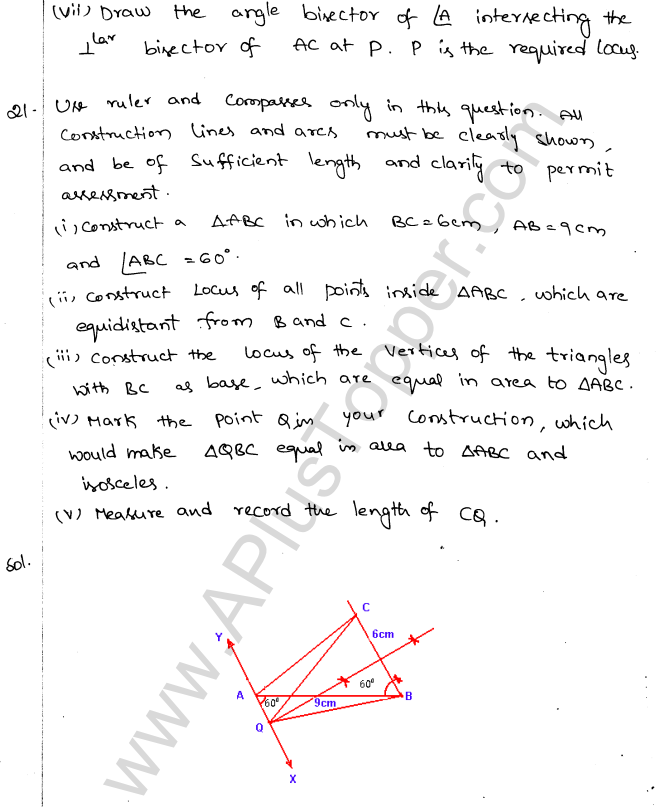 (vii) Draw the angle bisector of ∠A intersecting the
⊥lar bisector of AC at P. P is the required locus.
21. Use ruler and compasses only in this question. All
construction lines and arcs must be clearly shown,
and be of sufficient length and clarity to permit
assessment.
(i) construct a ΔABC in which BC = 6cm, AB = 9cm
and ∠ABC = 60°.
(ii) construct Locus of all points inside ΔABC, which are
equidistant from B and C.
(iii) construct the locus of the vertices of the triangles
with BC as base, which are equal in area to ΔABC.
(iv) Mark the point Q in your construction, which
would make ΔQBC equal in area to ΔABC and
isosceles.
(v) Measure and record the length of CQ.
Sol.
C
Y
6cm
60°
A
60°
9cm
B
Q
X
www.APlusTopper.com